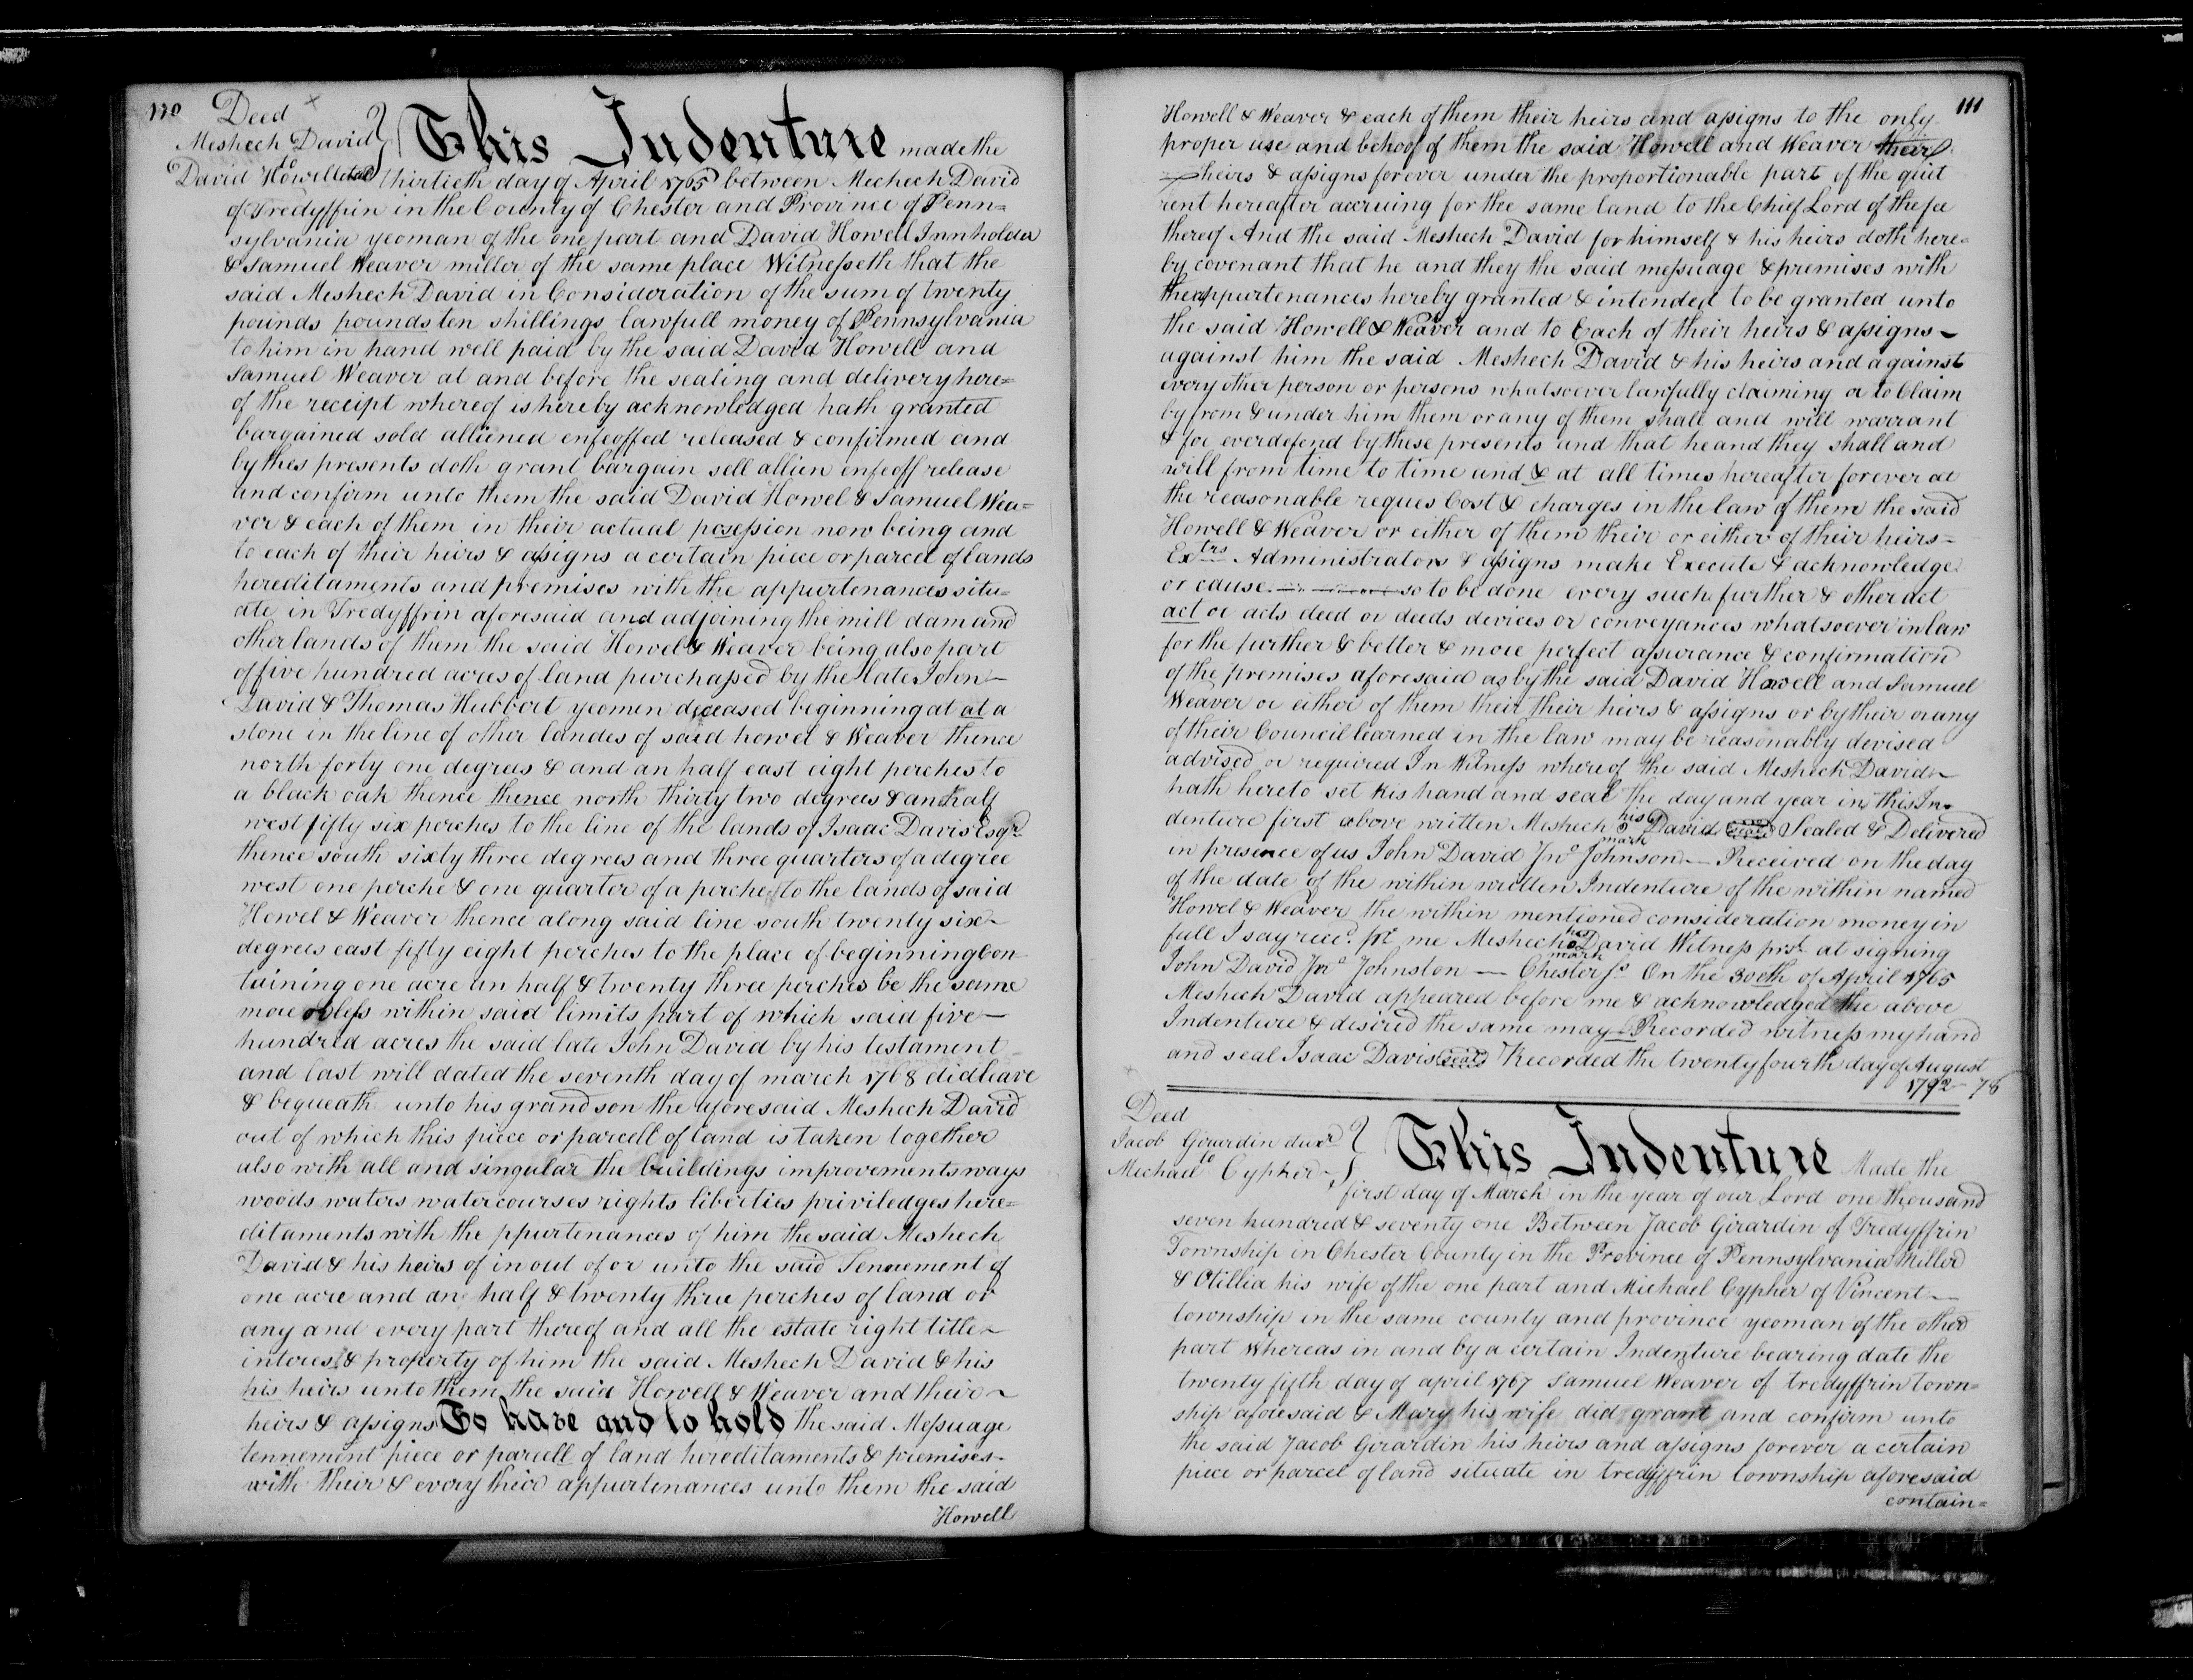 110 Deed
Meshech David
to
David Howell et al
This Indenture made the
thirtieth day of April 1765 between Mechech David
of Tredyffrin in the County of Chester and Province of Penn=
sylvania yeoman of the one part and David Howell Innholder
& Samuel Weaver miller of the same place Witnesseth that the
said Meshech David in Consideration of the sum of twenty
pounds pounds ten shillings lawfull money of Pennsylvania
to him in hand well paid by the said David Howell and
Samuel Weaver at and before the sealing and delivery here=
of the receipt whereof is hereby acknowledged hath granted
bargained sold alliened enfeoffed released & confirmed and
by thes presents doth grant bargain sell allien enfeoff release
and confirm unto them the said David Howel & Samuel Wea=
ver & each of them in their actual posession now being and
to each of their heirs & assigns a certain piece or parcel of lands
hereditaments and premises with the appurtenances situ=
ate in Tredyffrin aforesaid and adjoining the mill dam and
other lands of them the said Howel & Weaver being also part
of five hundred acres of land purchassed by the late John
David & Thomas Hubbert yeomen deceased beginning at at a
stone in the line of other landes of said howel & Weaver thence
north forty one degrees & and an half east eight perches to
a black oak thence thence north thirty two degrees & an half
west fifty six perches to the line of the lands of Isaac Davis Esqr
thence south sixty three degrees and three quarters of a degree
west one perche & one quarter of a perche to the lands of said
Howel & Weaver thence along said line south twenty six
degrees east fifty eight perches to the place of beginning con
taining one acre an half & twenty three perches be the same
more or less within said limits part of which said five
hundred acres the said late John David by his testament
and last will dated the seventh day of march 1768 did leave
& bequeath unto his grandson the aforesaid Meshech David
out of which this piece or parcell of land is taken together
also with all and singular the buildings improvements ways
woods waters watercourses rights liberties priviledges here=
ditaments with the ppurtenances of him the said Meshech
David & his heirs of in out of or unto the said Tennement of
one acre and an half & twenty three perches of land or
any and every part thereof and all the estate right title
interest & property of him the said Meshech David & his
his heirs unto them the said Howell & Weaver and their
heirs & assigns To have and to hold the said Messuage
tennement piece or parcell of land hereditaments & premises
with their & every their appurtenances unto them the said
Howell
111
Howell & Weaver & each of them their heirs and assigns to the only
proper use and behoof of them the said Howell and Weaver their
heirs & assigns forever under the proportionable part of the quit
rent hereafter accruing for the same land to the Chief Lord of the fee
thereof And the said Meshech David for himself & his heirs doth here=
by covenant that he and they the said messuage & premises with
the appurtenances hereby granted & intended to be granted unto
the said Howell & Weaver and to Each of their heirs & assigns
against him the said Meshech David & his heirs and against
every other person or persons whatsoever lawfully claiming or to Claim
by from & under him them or any of them shall and will warrant
& for ever defend by these presents and that he and they shall and
will from time to time and & at all times hereafter forever at
the reasonable reques Cost & charges in the law of them the said
Howell & Weaver or either of them their or either of their heirs
Extrs Administrators & assigns make Execute & acknowledge
or cause so to be done every such further & other act
act or acts deed or deeds devices or conveyances whatsoever in law
for the further & better & more perfect assurance & confirmation
of the premises aforesaid as by the said David Howell and Samuel
Weaver or either of them their their heirs & assigns or by their or any
of their Council learned in the law may be reasonably devised
advised or required In Witness whereof the said Meshech David
hath hereto set his hand and seal the day and year in this In=
denture first above written Meshech his mark David seal Sealed & Delivered
in presence of us John David Jno Johnson Received on the day
of the date of the within written Indenture of the within named
Howel & Weaver the within mentioned consideration money in
full I say recd. pr me Meshech his mark David Witness prst at signing
John David Jno Johnston Chester sc On the 30eth of April 1765
Meshech David appeared before me & acknowledged the above
Indenture & desired the same may Recorded witness my hand
and seal Isaac Davis seal Recorded the twenty fourth day of August
1792
Deed
Jacob Girardin & uxr
to
Michael Cypher
This Indenture Made the
first day of March in the year of our Lord one thousand
seven hundred & seventy one Between Jacob Girardin of Tredyffrin
Township in Chester County in the Province of Pennsylvania Miller
& Otillia his wife of the one part and Michael Cypher of Vincent
township in the same county and province yeoman of the other
part Whereas in and by a certain Indenture bearing date the
twenty fifth day of april 1767 Samuel Weaver of tredyffrin town=
ship aforesaid & Mary his wife did grant and confirm unto
the said Jacob Girardin his heirs and assigns forever a certain
piece or parcel of land situate in tredyffrin township aforesaid
contain=